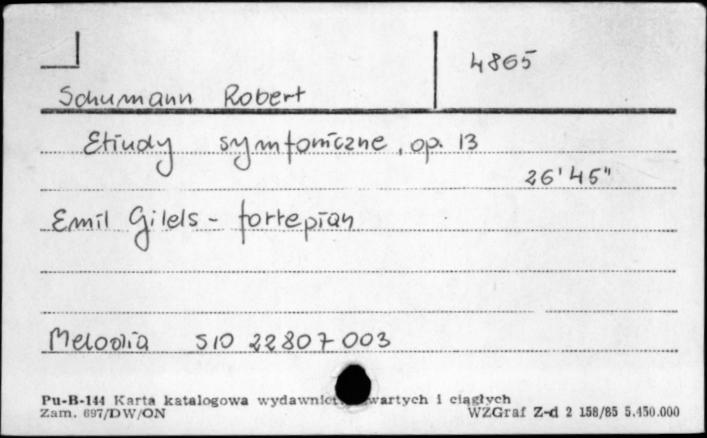 4865
Schumann Robert
Etiudy symfoniczne, op. 13
26'45"
Emil Gilels - fortepian
Melodia S10 22807 003
Pu-B-144 Karta katalogowa wydawnict wartych i ciągłych
Zam. 697/DW/ON WZGraf Z-d 2 158/85 5.450.000